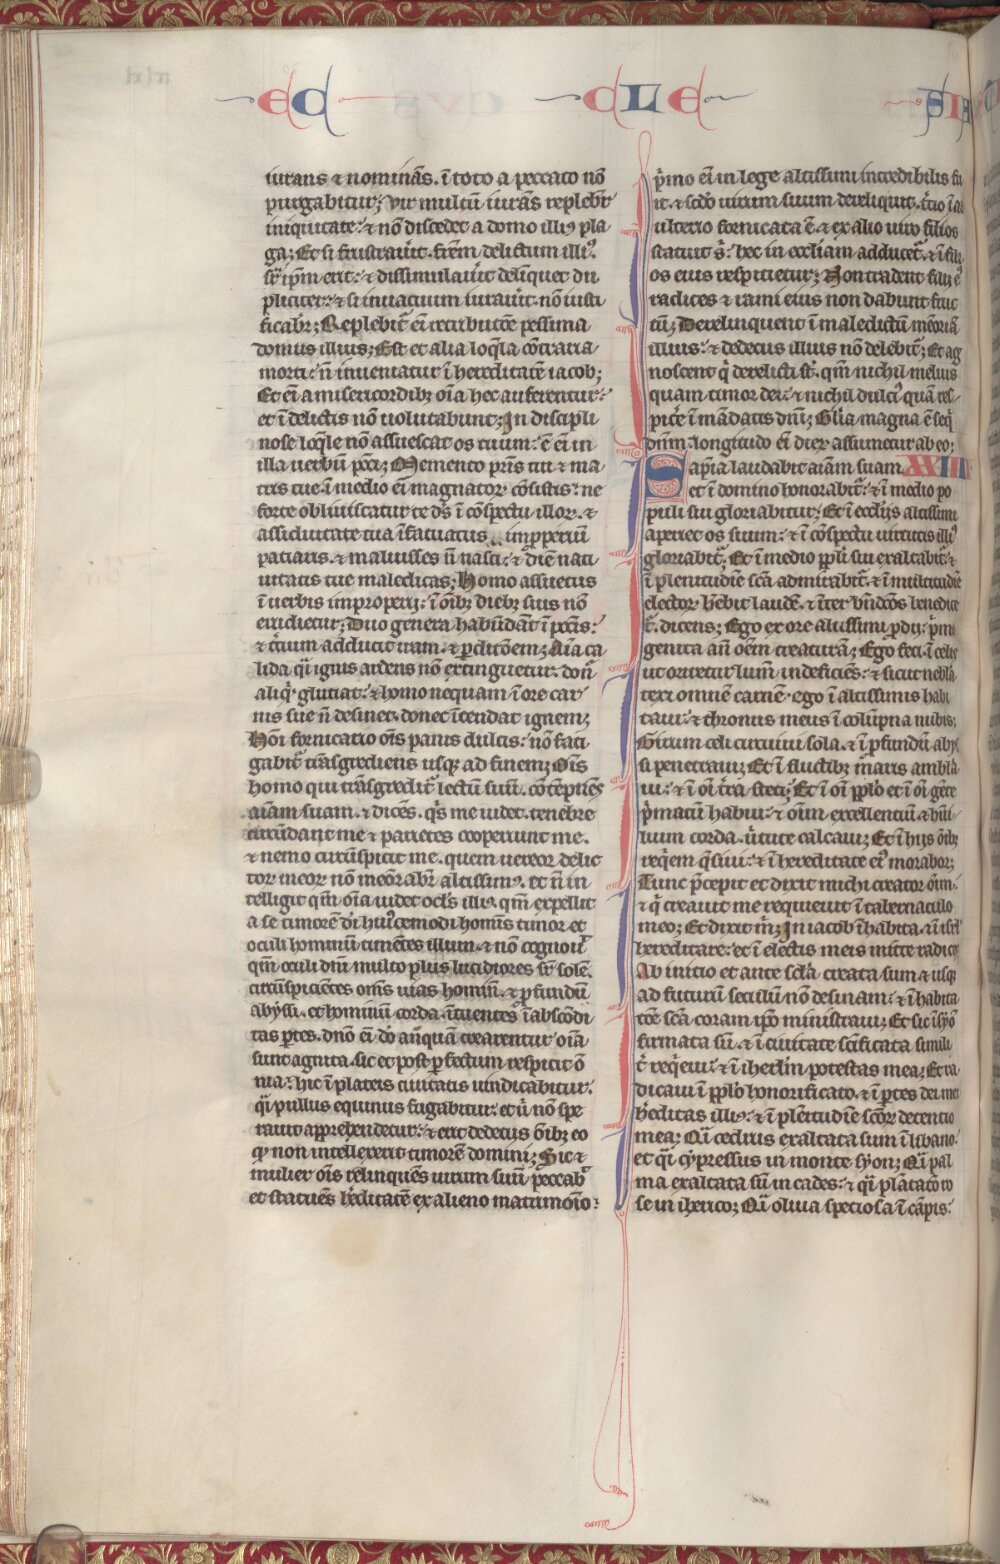 EC CLE SIA
iurans ⁊ nominās. ī toto a peccato nō
purgabitur; Vir multū iurās replebit᷑
iniquitate: ⁊ nō discedet a domo illiꝰ pla
ga; Et si frustrauīt. frēm. delictum illiꝰ.
sr̄ ip̄m erit: ⁊ dissimulauīt delīquet du
pliciter: ⁊ si inuacuum iurauīt. nō iusti
ficabit᷑; Replebit᷑ eī retributōe pessima
domus illius; Est et alia loq̄la cōtraria
morti. n̄ inueniatur ī hereditatē iacob;
Et eī a misericordibꝫ oīa hec auferentur:
et ī delictis nō uolutabunt; In discipli
nose loq̄le nō assuescat os tuum: ē eī in
illa uerbū pcc̄i; Memento pr̄is tui ⁊ ma
tris tue ī medio eī magnatoꝝ cōsistis: ne
forte obliuiscatur te ds̄ ī cōspectu illoꝝ. ⁊
assiduitate tua īfatuatus improperiū
patiaris. ⁊ maluisses n̄ nasci. ⁊ diē nati
uitatis tue maledicas; Homo assuetus
ī uerbis improperij: ī oībꝫ diebꝫ suis nō
erudietur; Duo genera habūdāt ī pcc̄is:
⁊ t̄cium adducit iram. ⁊ ꝑditōem; Aīa ca
lida qͣi ignis ardens nō extinguetur. don̄
aliq̄ glutiat: ⁊ homo nequam ī ore car
nis sue n̄ desinet. donec īcendat ignem;
Hōi fornicario oīs panis dulcis: nō fati
gabit᷑ trāsgrediens usqꝫ ad finem; Oīs
homo qui trāsgredit᷑ lectū suū. cōtēpnēs
aīam suam. ⁊ dicēs. qͥs me uidet. tenebre
circūdant me ⁊ parietes cooperiunt me.
⁊ nemo circūspicit me. quem uereor delic
toꝝ meoꝝ nō meōrabit᷑ altissimꝰ. et n̄ in
telligit qm̄ oīa uidet oclꝰs illiꝰ. qm̄ expellit
a se timorē dī huꝰcemodi homīs timor et
oculi hominū timētes illum. ⁊ nō cognouͥ
qm̄ oculi dn̄i multo plus lucidiores sr̄ solē.
circūspiciētes om̄s uias homin̄. ⁊ ꝓfundū
abyssi. et hominū corda. ītuentes ī abscōdi
tas ꝑtes. dn̄o eī dō an̄quā crearentur oīa
sunt agnita. sic et post ꝑfectum respicit ō
nia: hic ī plateis ciuitatis uindicabitur.
qͣi pullus equinus fugabitur: et ū nō spe
rauit apprehendetur: ⁊ erit dedecus oībꝫ eo
qͩ non intellexerit timorē domini; Sic ⁊
mulier oīs relinquēs uirum suū peccabͭ
et statuēs h̄editatē ex alieno matrimōio:
pͥmo eī in lege altissimi incredibilis fu
it. ⁊ sc̄do uirum suum dereliquit. t̄cio ī ad
ulterio fornicata ē. ⁊ ex alio uiro filios
statuit s̄. hec in ecc̄liam adducet᷑. ⁊ ī fili
os eius respicietur; Non tradent filij eꝰ
radices ⁊ rami eius non dabunt fruc
tū; Derelinquent ī maledictū mēoriā
illius: ⁊ dedecus illius nō delebit᷑; Et ag
noscent q̄ derelicti st̄. qm̄ nichil melius
quam timor dei: ⁊ nichil dulciꝰ quā res
picē ī mādatis dn̄i; Gl̄ia magna ē seq̄
dn̄m. longitudo eī dieꝝ assumetur ab eo;
Sapīa laudabit aīam suam XXIIII
et ī domino honorabit᷑: ⁊ ī medio po
puli sui gloriabitur; Et ī eccl̄ijs altissimi
aperiet os suum: ⁊ ī cōspectu uirtutis illiꝰ
gloriabit᷑; Et ī medio pp̄li sui exaltabit᷑. ⁊
ī plenitudīe scā admirabit᷑. ⁊ ī multitudīe
electoꝝ h̄ebit laudē. ⁊ īter bn̄dc̄os benedice
t᷑. dicens; Ego ex ore altissimi ꝓdij. pͥmo
genita an̄ oēm creaturā; Ego feci ī celis
ut oriretur lum̄ indeficiēs. ⁊ sicut nebla
texi omnē carnē. ego ī altissimis habi
taui: ⁊ thronus meus ī colūpna nubis;
Girum celi circuiui sola. ⁊ ī ꝓfundū abyſ
si penetraui; Et ī fluctibꝫ maris ambla
ui. ⁊ ī oī tr̄a steti; Et ī oī pp̄lo et ī oī gēte
pͥmatū habui: ⁊ oīum excellentiū ⁊ hūi
lium corda. ūtute calcaui; Et ī hijs oībꝫ
req̄em q̄siui: ⁊ ī hereditate eiꝰ morabor;
Tunc p̄cepit et dixit michi creator oīm.
⁊ q̄ creauit me requieuit ī tabernaculo
meo; Et dixit m̄; In iacob īhabita. ⁊ ī isrl̄
hereditare: et ī electis meis mitte radices
Ab initio et ante scl̄a creata sum ⁊ usqꝫ
ad futurū seculū nō desinam: ⁊ ī habita
tōe scā coram ip̄o ministraui; Et sic ī syō
firmata sū. ⁊ ī ciuitate sc̄ificata simili
t̄ req̄eui: ⁊ ī iherl̄m potestas mea; Et ra
dicaui ī pp̄lo honorificato. ⁊ ī ꝑtes dei mei
h̄editas illiꝰ: ⁊ ī plenitudīe sc̄oꝝ detentio
mea; Qͣi cedrus exaltata sum ī libano:
et qͣi cypressus in monte syon; Qͣi pal
ma exaltata sū in cades: ⁊ qͣi plātatō ro
se in iherico; Qͣi oliua speciosa ī cāpis: